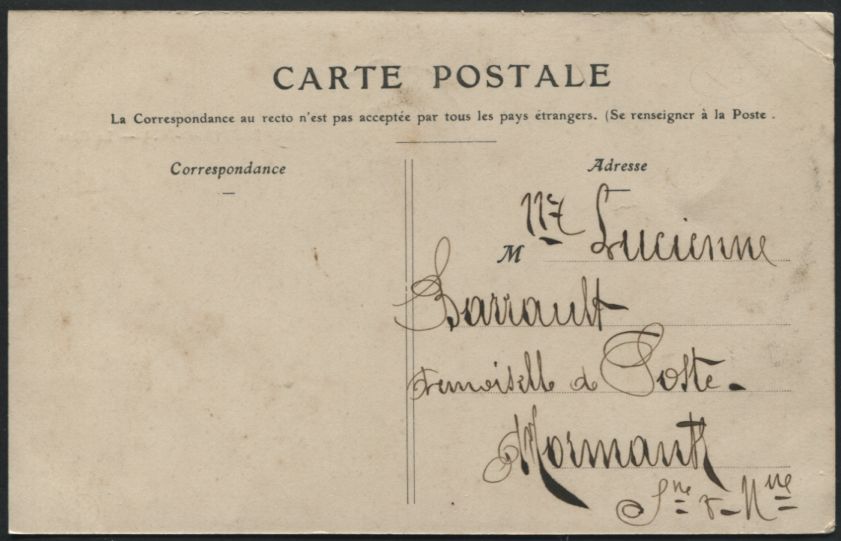 CARTE POSTALE
La Correspondance au recto n'est pas acceptée par tous les pays étrangers. (Se renseigner à la Poste .
Correspondance
Adresse
M Lucienne
Barrault
demoiselle de Poste.
Mormant
Sne & Mne